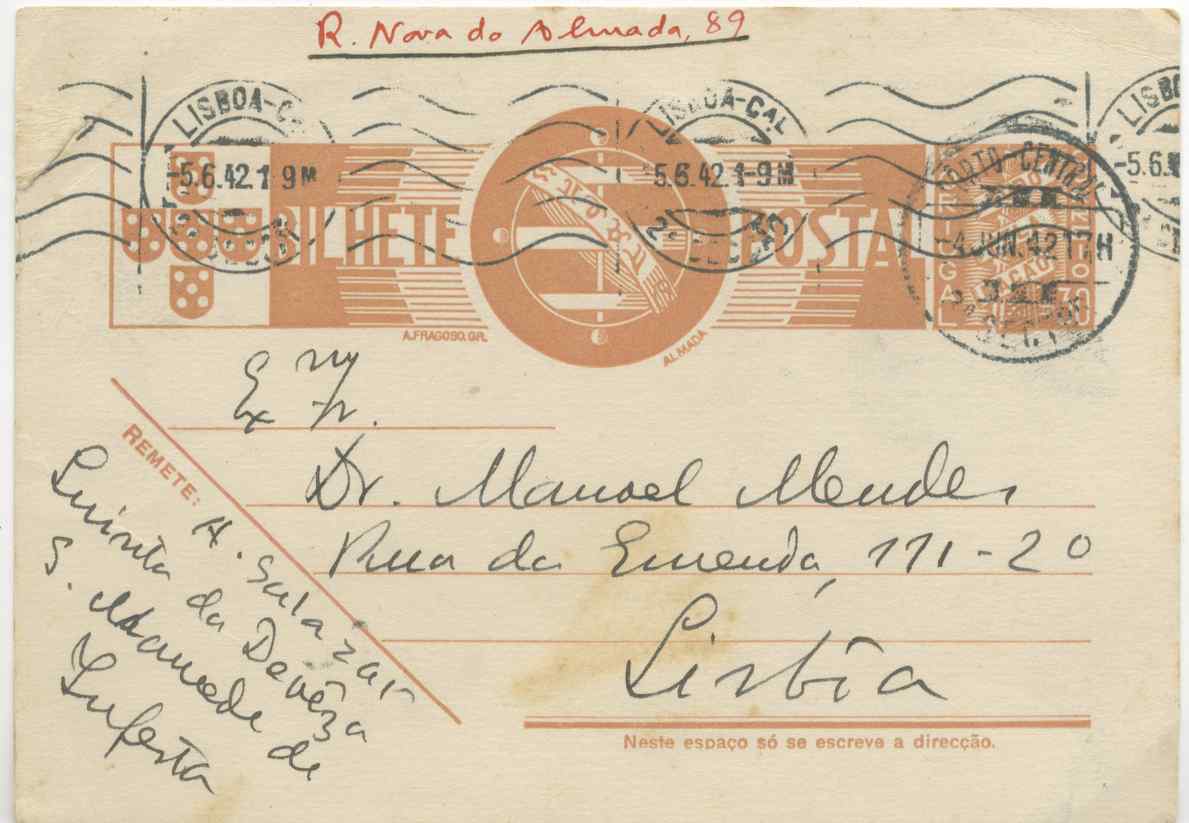 R. Nova do Almada, 89
LISBOA-C
-5.6.42.1 9M
LISBOA-CAL
-5.6.42.1-9M
LISBO
-5.6.
PORTO-CENTRAL
-4.JUN.42 17H
BILHETE POSTAL
30
A.FRAGOSO.GR.
ALMADA
Exmo Sr.
Dr. Manoel Mendes
Rua da Emenda, 111-2º
Lisbôa
Neste espaço só se escreve a direcção.
REMETE:
A. Salazar
Quinta da Devêza
S. Mamede de
Infesta